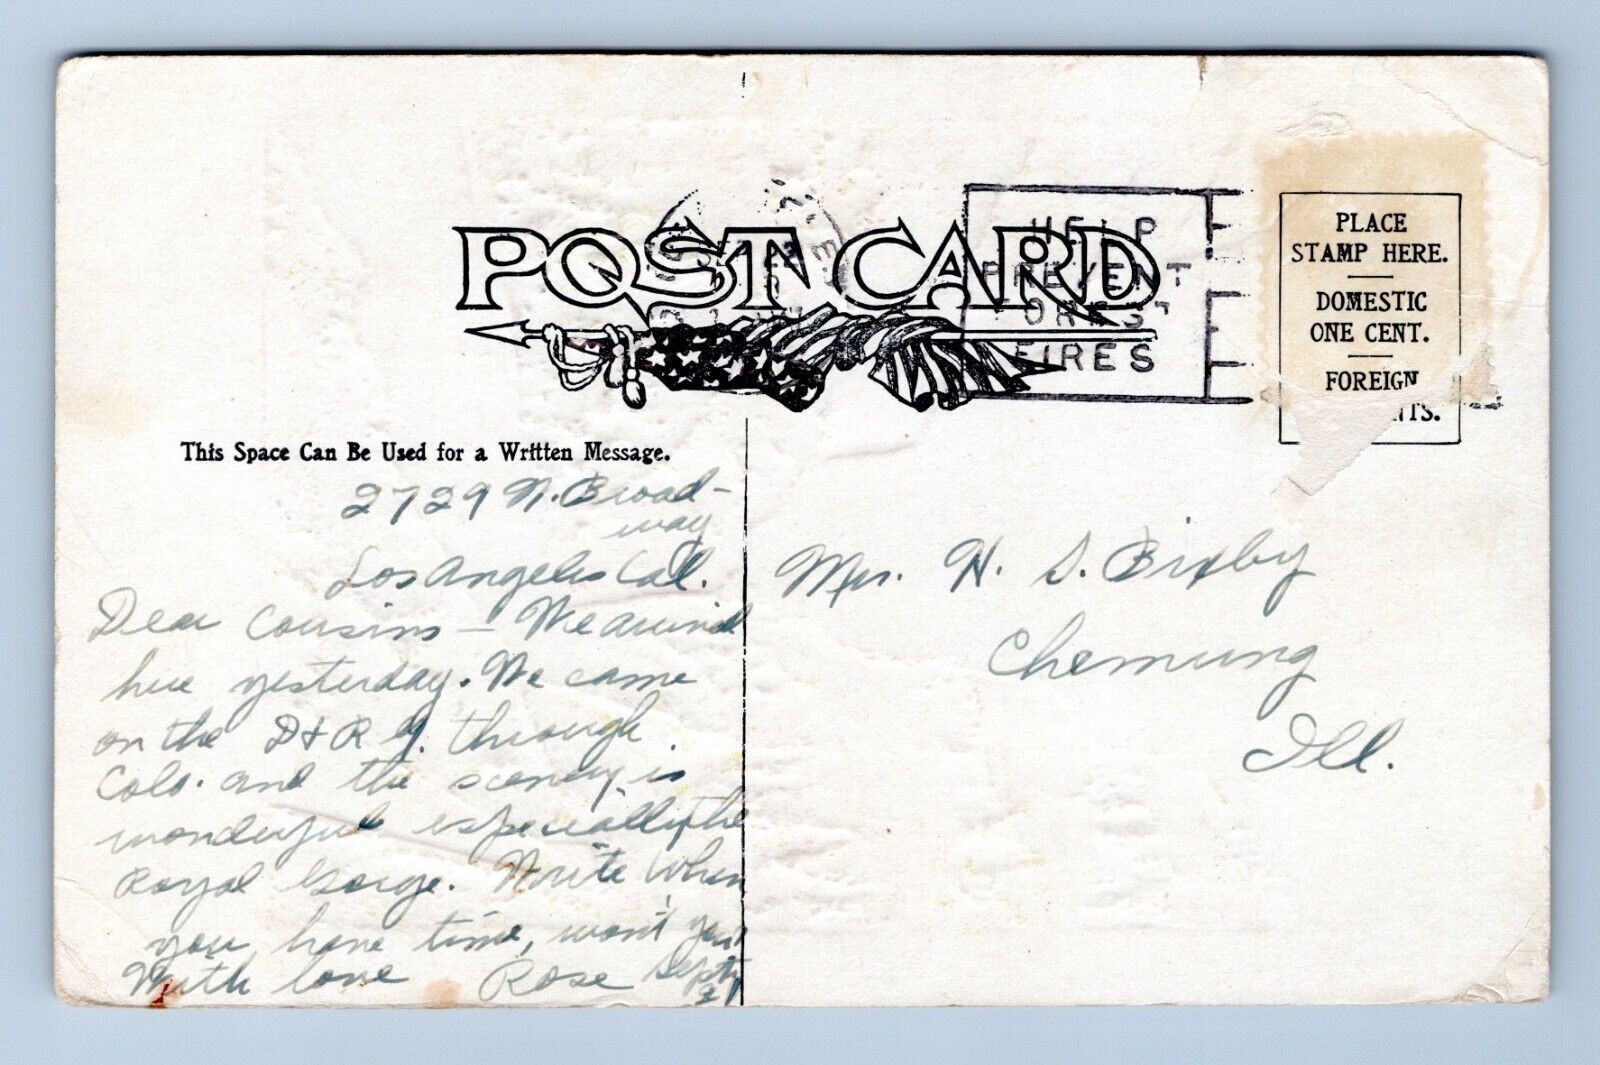 POST CARD
HELP
PREVENT
FOREST
FIRES
PLACE
STAMP HERE.
DOMESTIC
ONE CENT.
FOREIGN
This Space Can Be Used for a Written Message.
2729 N. Broad-
way
Los Angeles Cal.
Dear Cousins — We arrived
here yesterday. We came
on the D & R G. through
Colo. and the scenery is
wonderful especially the
Royal Gorge. Write when
you have time, won't you?
With love Rose Sept
Mrs. H. S. Bixby
Chemung
Ill.